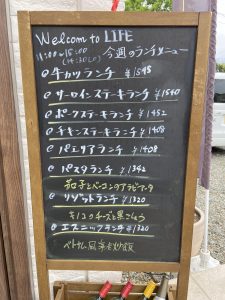 Welcome to LIFE
11:00〜15:00
(14:30 LO)
今週のランチメニュー
牛カツランチ ¥1595
サーロインステーキランチ ¥1540
ポークステーキランチ ¥1452
チキンステーキランチ ¥1408
パエリアランチ ¥1408
パスタランチ ¥1342
茄子とベーコンのアラビアータ
リゾットランチ ¥1320
キノコチーズと黒こしょう
エスニックランチ ¥1320
ベトナム風